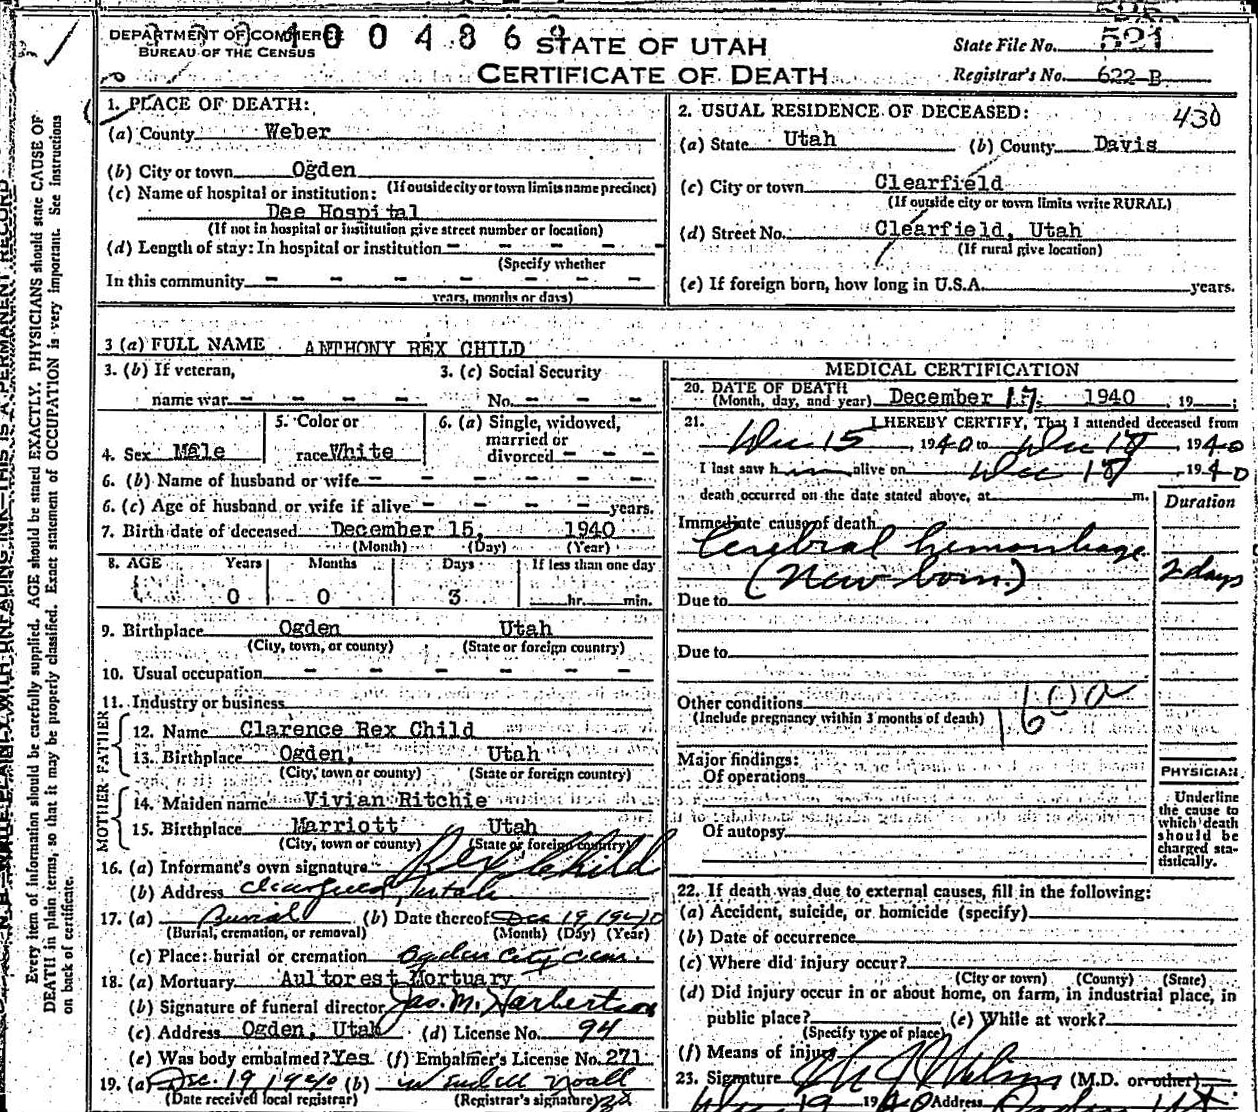 DEPARTMENT OF COMMERCE
BUREAU OF THE CENSUS
1004869
STATE OF UTAH
CERTIFICATE OF DEATH
State File No. 521
Registrar's No. 622-B
Every item of information should be carefully supplied. AGE should be stated EXACTLY. PHYSICIANS should state CAUSE OF
DEATH in plain terms, so that it may be properly classified. Exact statement of OCCUPATION is very important. See instructions
on back of certificate.
1. PLACE OF DEATH:
(a) County Weber
(b) City or town Ogden
(If outside city or town limits name precinct)
(c) Name of hospital or institution:
Dee Hospital
(If not in hospital or institution give street number or location)
(d) Length of stay: In hospital or institution - - - - -
(Specify whether
In this community - - - - - - -
years, months or days)
2. USUAL RESIDENCE OF DECEASED: 430
(a) State Utah (b) County Davis
(c) City or town Clearfield
(If outside city or town limits write RURAL)
(d) Street No. Clearfield, Utah
(If rural give location)
(e) If foreign born, how long in U.S.A. years.
3 (a) FULL NAME ANTHONY REX CHILD
3. (b) If veteran, name war - - - -
3. (c) Social Security No. - - - -
4. Sex Male
5. Color or race White
6. (a) Single, widowed, married or divorced - - -
6. (b) Name of husband or wife - - - - - -
6. (c) Age of husband or wife if alive - - - - years.
7. Birth date of deceased December 15, 1940
(Month) (Day) (Year)
8. AGE Years Months Days If less than one day
0 0 3 hr. min.
9. Birthplace Ogden Utah
(City, town, or county) (State or foreign country)
10. Usual occupation - - - - - - -
11. Industry or business
FATHER
12. Name Clarence Rex Child
13. Birthplace Ogden, Utah
(City, town or county) (State or foreign country)
MOTHER
14. Maiden name Vivian Ritchie
15. Birthplace Marriott Utah
(City, town or county) (State or foreign country)
16. (a) Informant's own signature Rex Child
(b) Address Clearfield, Utah
17. (a) Burial (b) Date thereof Dec 19 1940
(Burial, cremation, or removal) (Month) (Day) (Year)
(c) Place: burial or cremation Ogden City Cem.
18. (a) Mortuary Aultorest Mortuary
(b) Signature of funeral director Jas. M. Harbertson
(c) Address Ogden, Utah (d) License No. 94
(e) Was body embalmed? Yes (f) Embalmer's License No. 271
19. (a) Dec. 19 1940 (b) Wendell Noall
(Date received local registrar) (Registrar's signature)
MEDICAL CERTIFICATION
20. DATE OF DEATH
(Month, day, and year) December 17, 1940, 19 ;
21. I HEREBY CERTIFY, That I attended deceased from
Dec 15 1940 to Dec 18 1940
I last saw him alive on Dec 18 1940
death occurred on the date stated above, at m.
Duration
Immediate cause of death
Cerebral hemorrhage
(New born) 2 days
Due to
Due to
Other conditions
(Include pregnancy within 3 months of death)
160a
Major findings:
Of operations
Of autopsy
PHYSICIAN
Underline
the cause to
which death
should be
charged sta-
tistically.
22. If death was due to external causes, fill in the following:
(a) Accident, suicide, or homicide (specify)
(b) Date of occurrence
(c) Where did injury occur?
(City or town) (County) (State)
(d) Did injury occur in or about home, on farm, in industrial place, in
public place? (e) While at work?
(Specify type of place)
(f) Means of injury
23. Signature (M.D. or other)
Dec 19 1940 Address Ogden Ut